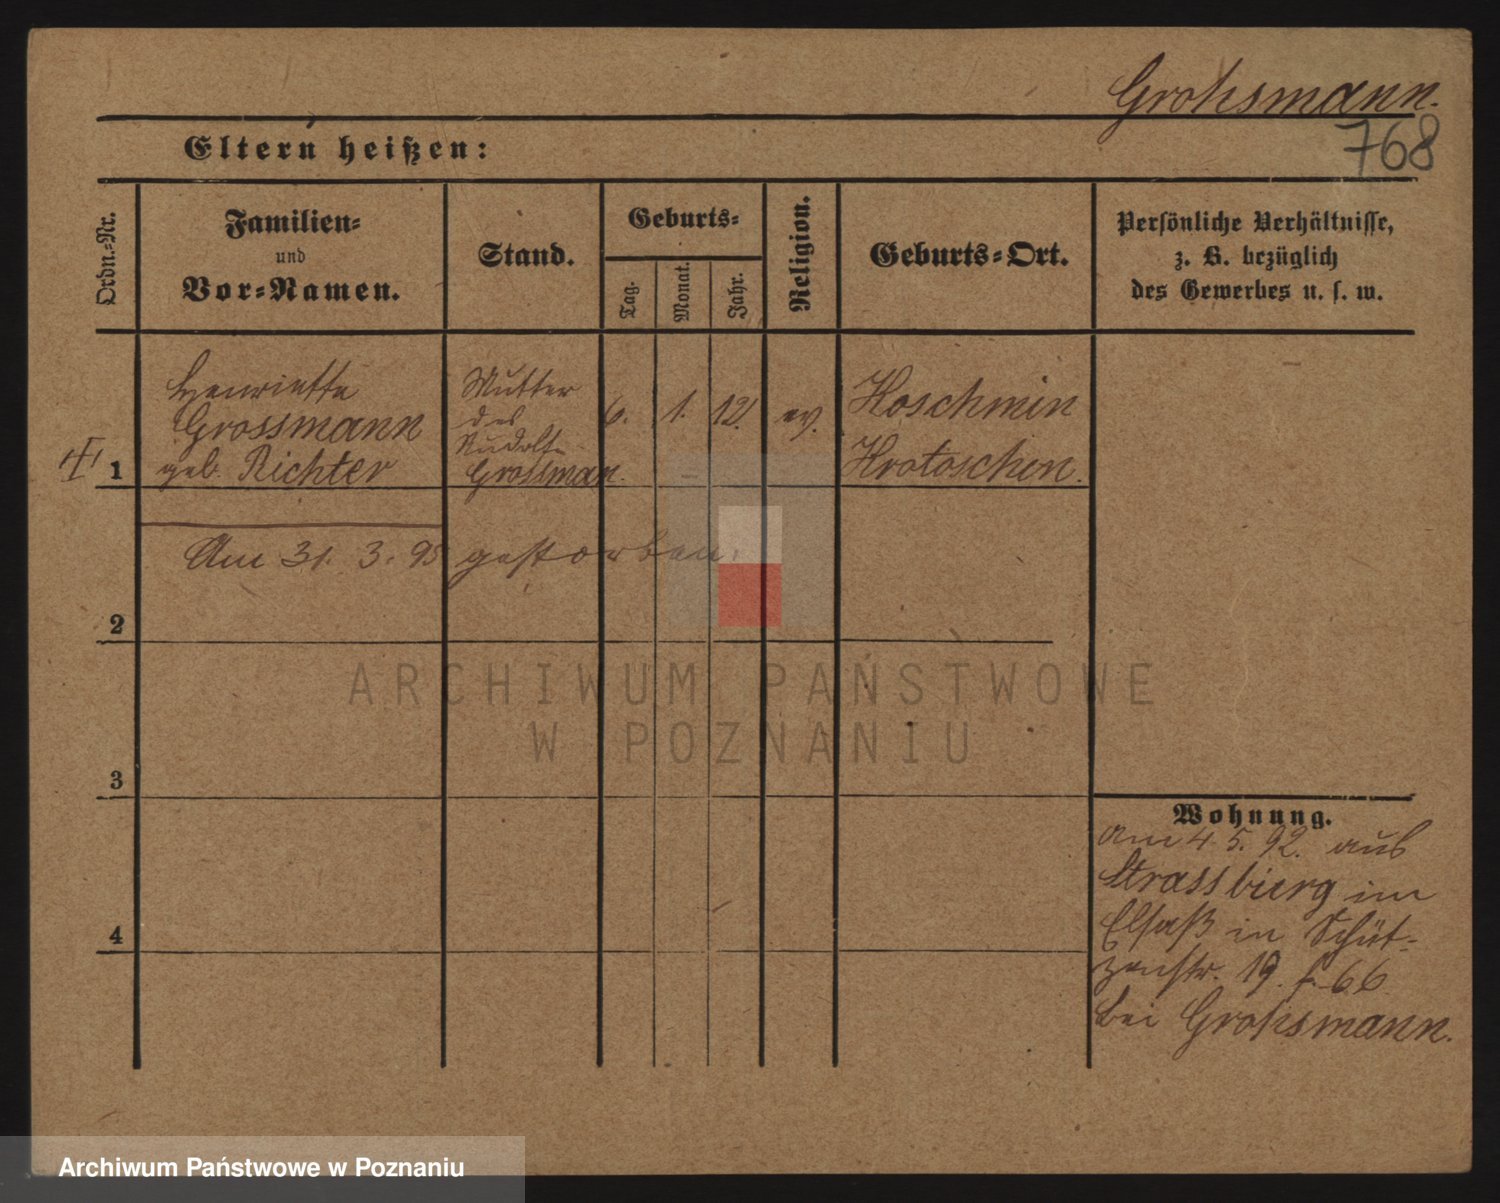 Grohsmann.
768
Eltern heißen:
Ordn.-Nr.
Familien-
und
Vor-Namen.
Stand.
Geburts-
Tag.
Monat.
Jahr.
Religion.
Geburts-Ort.
Persönliche Verhältnisse,
z. B. bezüglich
des Gewerbes u. s. w.
1
Henriette
Grossmann
geb. Richter
Mutter
des
Rudolf
Grossman.
6. 1. 12. ev.
Koschmin
Krotoschen.
Am 31. 3. 95 gestorben.
2
3
4
Wohnung.
Am 4. 5. 92. aus
Strassbierg im
Elsaß in Schüt-
zenstr. 19. f. 66
bei Grohsmann.
ARCHIWUM PAŃSTWOWE
W POZNANIU
Archiwum Państwowe w Poznaniu